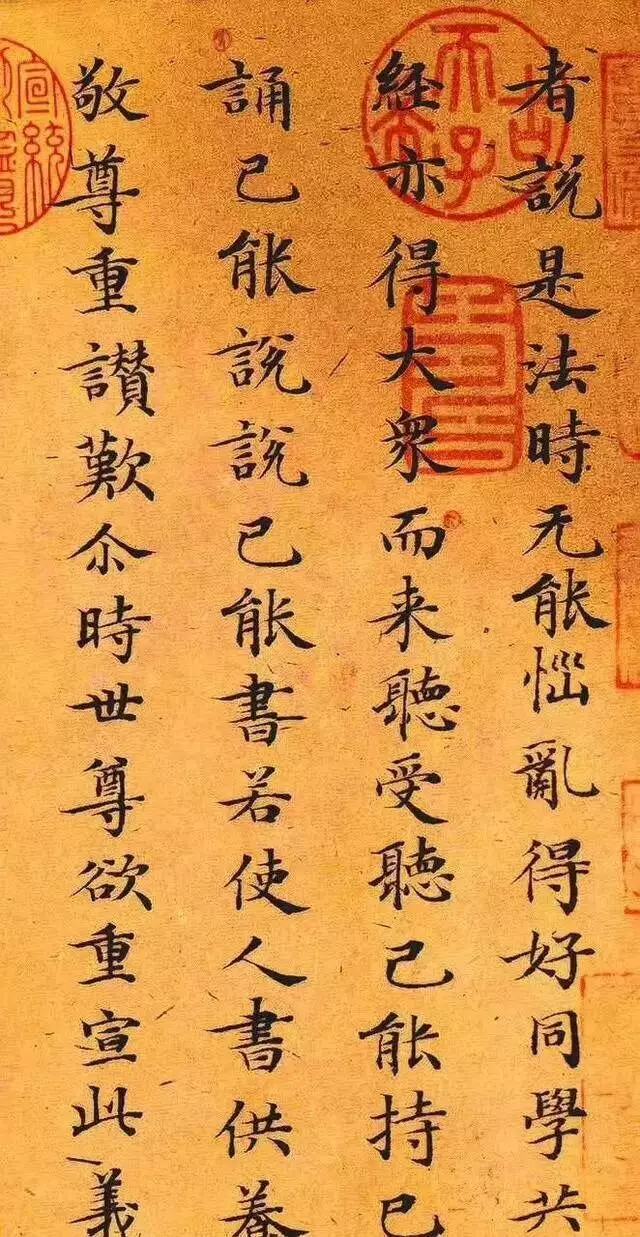 者説是法時无能惱亂得好同學共
経亦得大衆而来聽受聽已能持已
誦已能説説已能書若使人書供養
敬尊重讃歎尒時世尊欲重宣此義
古希天子
宣統